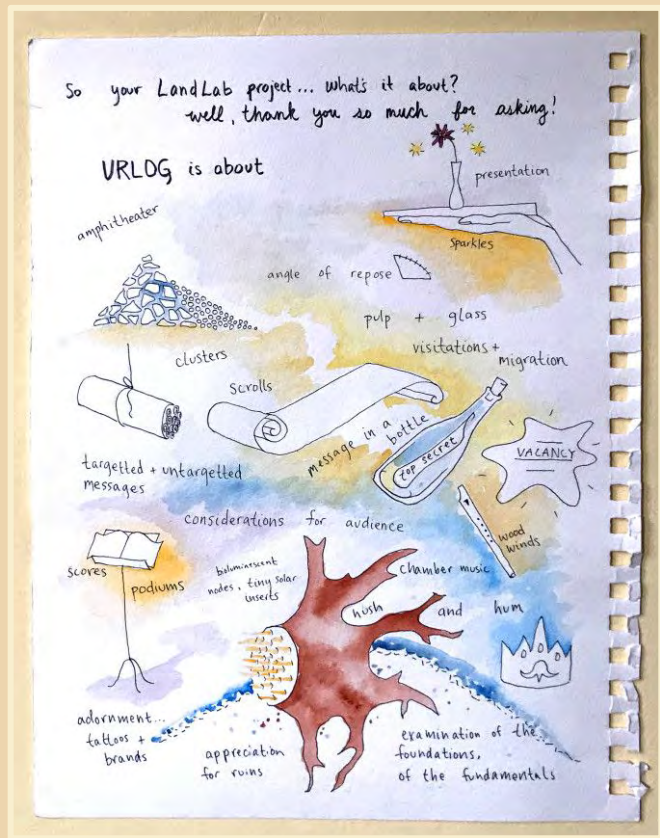 So your LandLab project... what's it about?
well, thank you so much for asking!
VRLOG is about
presentation
sparkles
amphitheater
angle of repose
pulp + glass
visitations +
migration
clusters
scrolls
message in a
bottle
top secret
VACANCY
targetted + untargetted
messages
considerations for audience
wood
winds
scores
podiums
boluminescent
nodes, tiny solar
inserts
chamber music
hush and hum
adornment...
tattoos +
brands
appreciation
for ruins
examination of the
foundations,
of the fundamentals